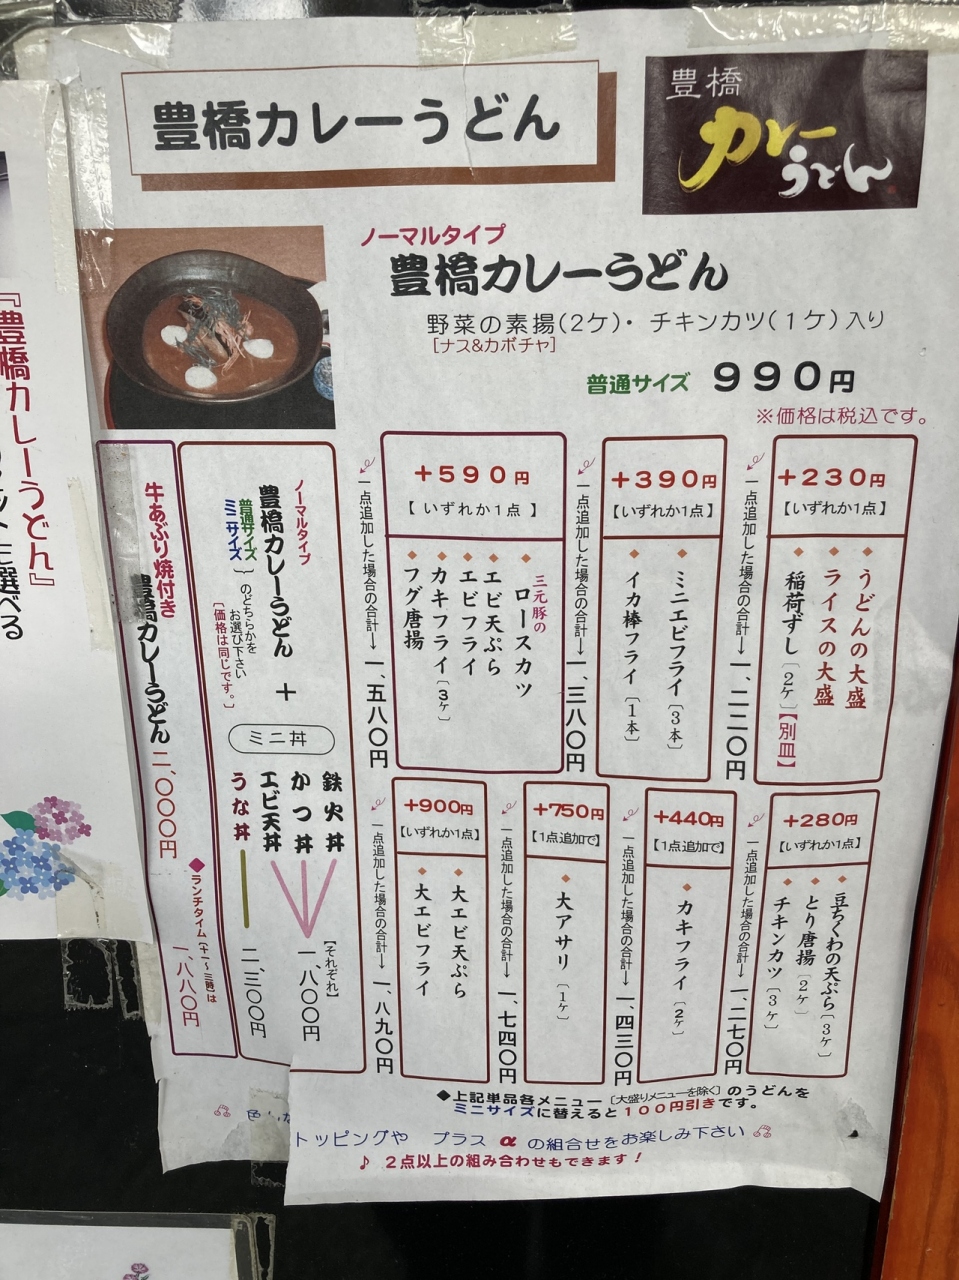 豊橋カレーうどん
豊橋
カレー
うどん
ノーマルタイプ
豊橋カレーうどん
野菜の素揚(2ケ)・チキンカツ(1ケ)入り
[ナス&カボチャ]
普通サイズ 990円
※価格は税込です。
+230円
【いずれか1点】
◆うどんの大盛
◆ライスの大盛
◆稲荷ずし〔2ケ〕【別皿】
一点追加した場合の合計→一、二二〇円
+390円
【いずれか1点】
◆ミニエビフライ〔3本〕
◆イカ棒フライ〔1本〕
一点追加した場合の合計→一、三八〇円
+590円
【いずれか1点】
◆三元豚のロースカツ
◆エビ天ぷら
◆エビフライ
◆カキフライ〔3ケ〕
◆フグ唐揚
一点追加した場合の合計→一、五八〇円
+280円
【いずれか1点】
◆豆ちくわの天ぷら〔3ケ〕
◆とり唐揚〔2ケ〕
◆チキンカツ〔3ケ〕
一点追加した場合の合計→一、二七〇円
+440円
【1点追加で】
◆カキフライ〔2ケ〕
一点追加した場合の合計→一、四三〇円
+750円
【1点追加で】
◆大アサリ〔1ケ〕
一点追加した場合の合計→一、七四〇円
+900円
【いずれか1点】
◆大エビ天ぷら
◆大エビフライ
一点追加した場合の合計→一、八九〇円
ノーマルタイプ
豊橋カレーうどん
普通サイズ
ミニサイズ
のどちらかを
お選び下さい
〔価格は同じです。〕
+
ミニ丼
鉄火丼
かつ丼
エビ天丼
うな丼
【それぞれ】
一、八〇〇円
二、三〇〇円
牛あぶり焼付き
豊橋カレーうどん 二、〇〇〇円
◆ランチタイム〔十一〜三時〕は
一、八八〇円
◆上記単品各メニュー〔大盛りメニューを除く〕のうどんを
ミニサイズに替えると100円引きです。
トッピングや プラスαの組合せをお楽しみ下さい
♪ 2点以上の組み合わせもできます!
『豊橋カレーうどん』
に選べる